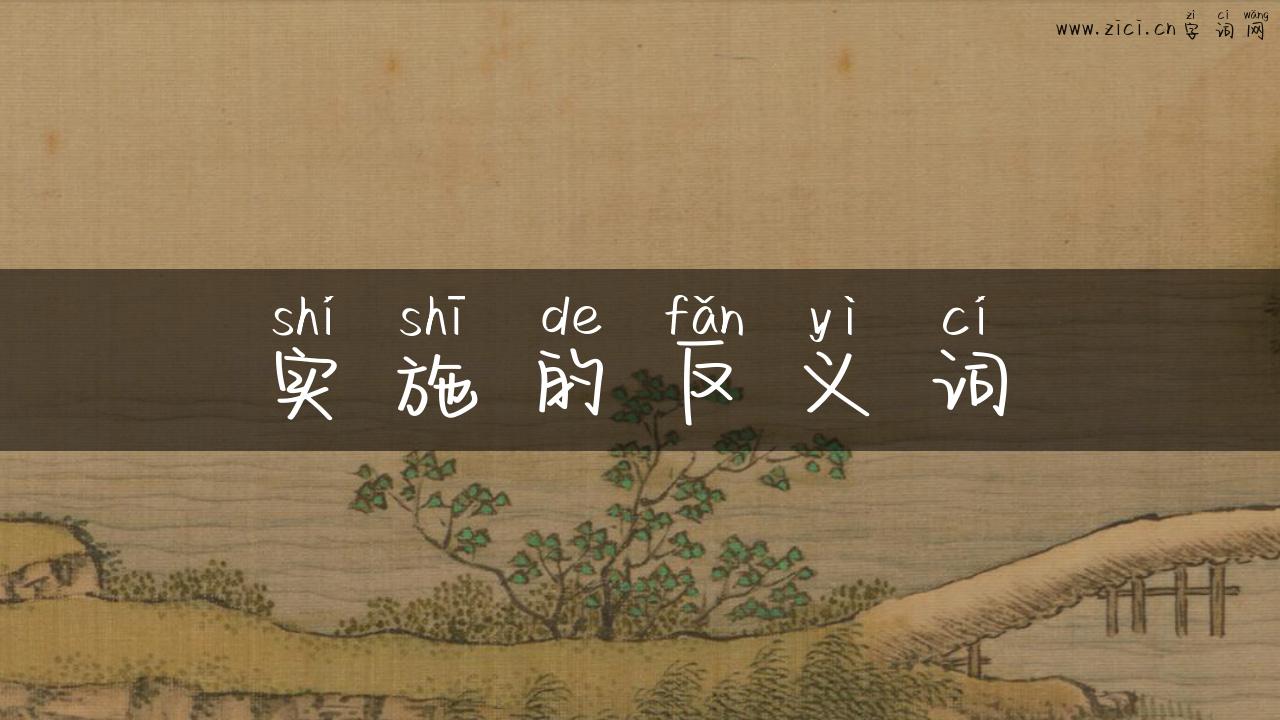 zì cí wǎng
www.zici.cn 字词网
shí shī de fǎn yì cí
实施的反义词